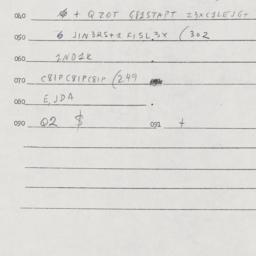 040 + QZOT G81STAPT Z3XC1LEJG+
050 6 JIN3RS+1 KISL3X (302
060 2ND1K
070 C81PC81PC81P (249
080 E,JDA .
090 Q2 $ 091 +